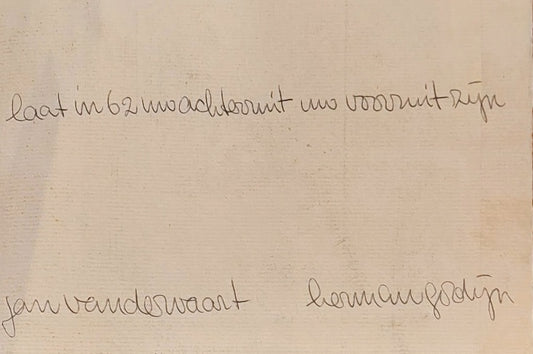 laat in 62 uw achteruit uw vooruit zijn
jan van der vaart herman gordijn